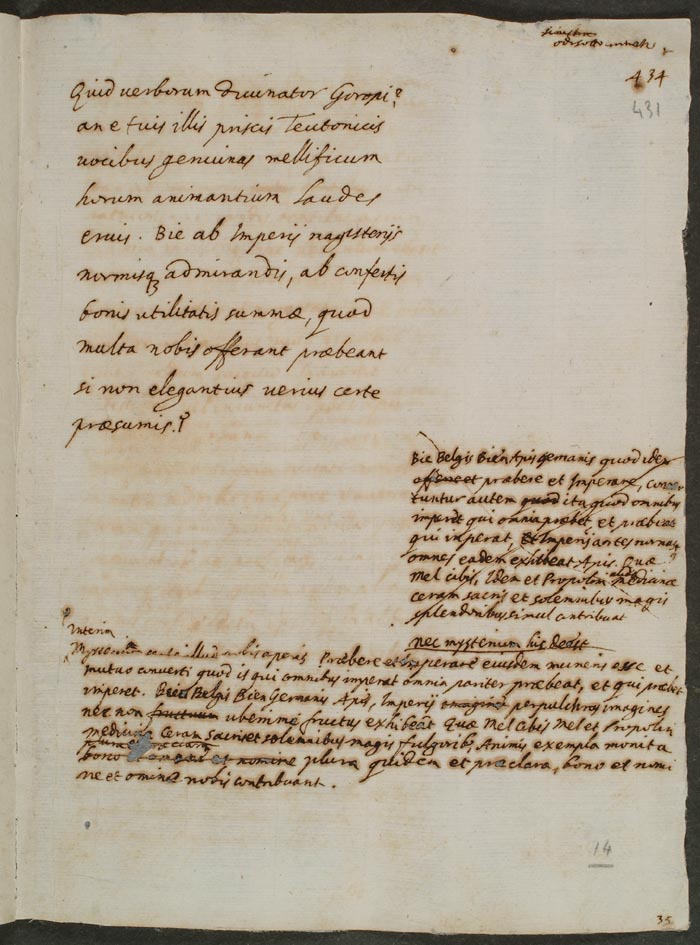 434
431
Quid verborum divinator Goropi?
an e tuis illis priscis Teutonicis
vocibus genuinas mellificum
horum animantium laudes
eruis. Bie ab Imperij magisterijs
normisq; admirandis, ab confertis
bonis utilitatis summæ, quod
multa nobis offerant præbeant
si non elegantius verius certe
præsumis.?
Bie Belgis Bien Apis germanis quod idem
offerre et præbere et Imperare, conver
tuntur autem quod ita quod omnibus
imperet qui omnia præbet, et præbeat
qui imperat, et Imperij artes normas
omnes eadem exhibeat Apis. Quæ
Mel cibis, Idem et Propolim medicinæ
ceram sacris et solemnibus magis
splendoribus simul contribuat
nec mysterium hic deest
Interim
illud nobis aperis Præbere et Imperare eiusdem muneris esse et
mutuo converti quod is qui omnibus imperat omnia pariter præbeat, et qui præbet
imperet. Bie Belgis Bien Germanis Apis, Imperij imagines perpulchras imagines
nec non fructuum uberrime fructus exhibeat Quæ Mel cibis Mel et Propolim
medicinæ Ceram sacris et solemnibus magis fulgorib, Animis exempla monita
bono et nomine plura quidem et præclara, bono et nomi
ne et omine nobis contribuant.
14
35